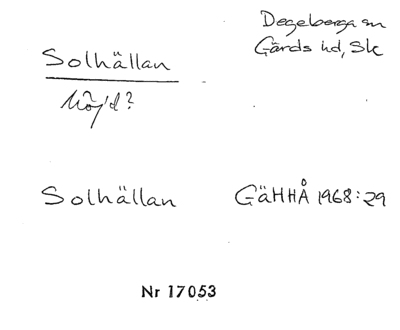 Degeberga sn
Gärds hd, Sk
Solhällan
höjd?
Solhällan GäHHÅ 1968:29
Nr 17053